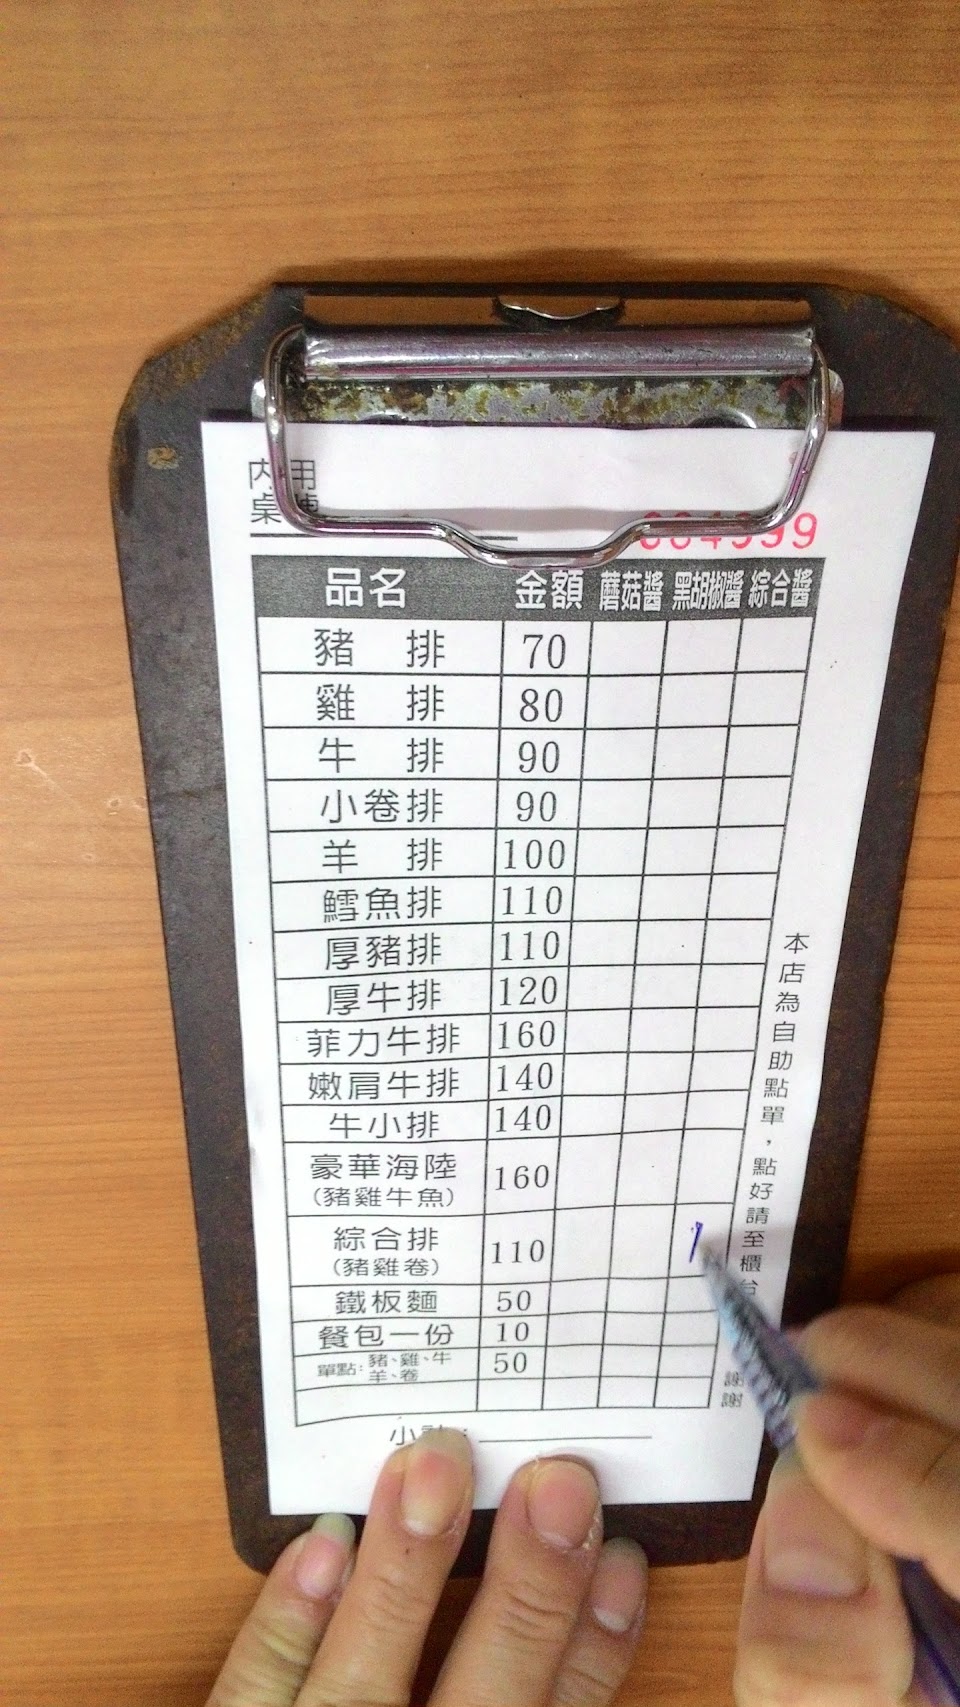 內用
桌號
004999
品名 金額 蘑菇醬 黑胡椒醬 綜合醬
豬排 70
雞排 80
牛排 90
小卷排 90
羊排 100
鱈魚排 110
厚豬排 110
厚牛排 120
菲力牛排 160
嫩肩牛排 140
牛小排 140
豪華海陸 160
(豬雞牛魚)
綜合排 110 1
(豬雞卷)
鐵板麵 50
餐包一份 10
單點:豬、雞、牛 50
羊、卷
小計:
本店為自助點單,點好請至櫃台
謝謝